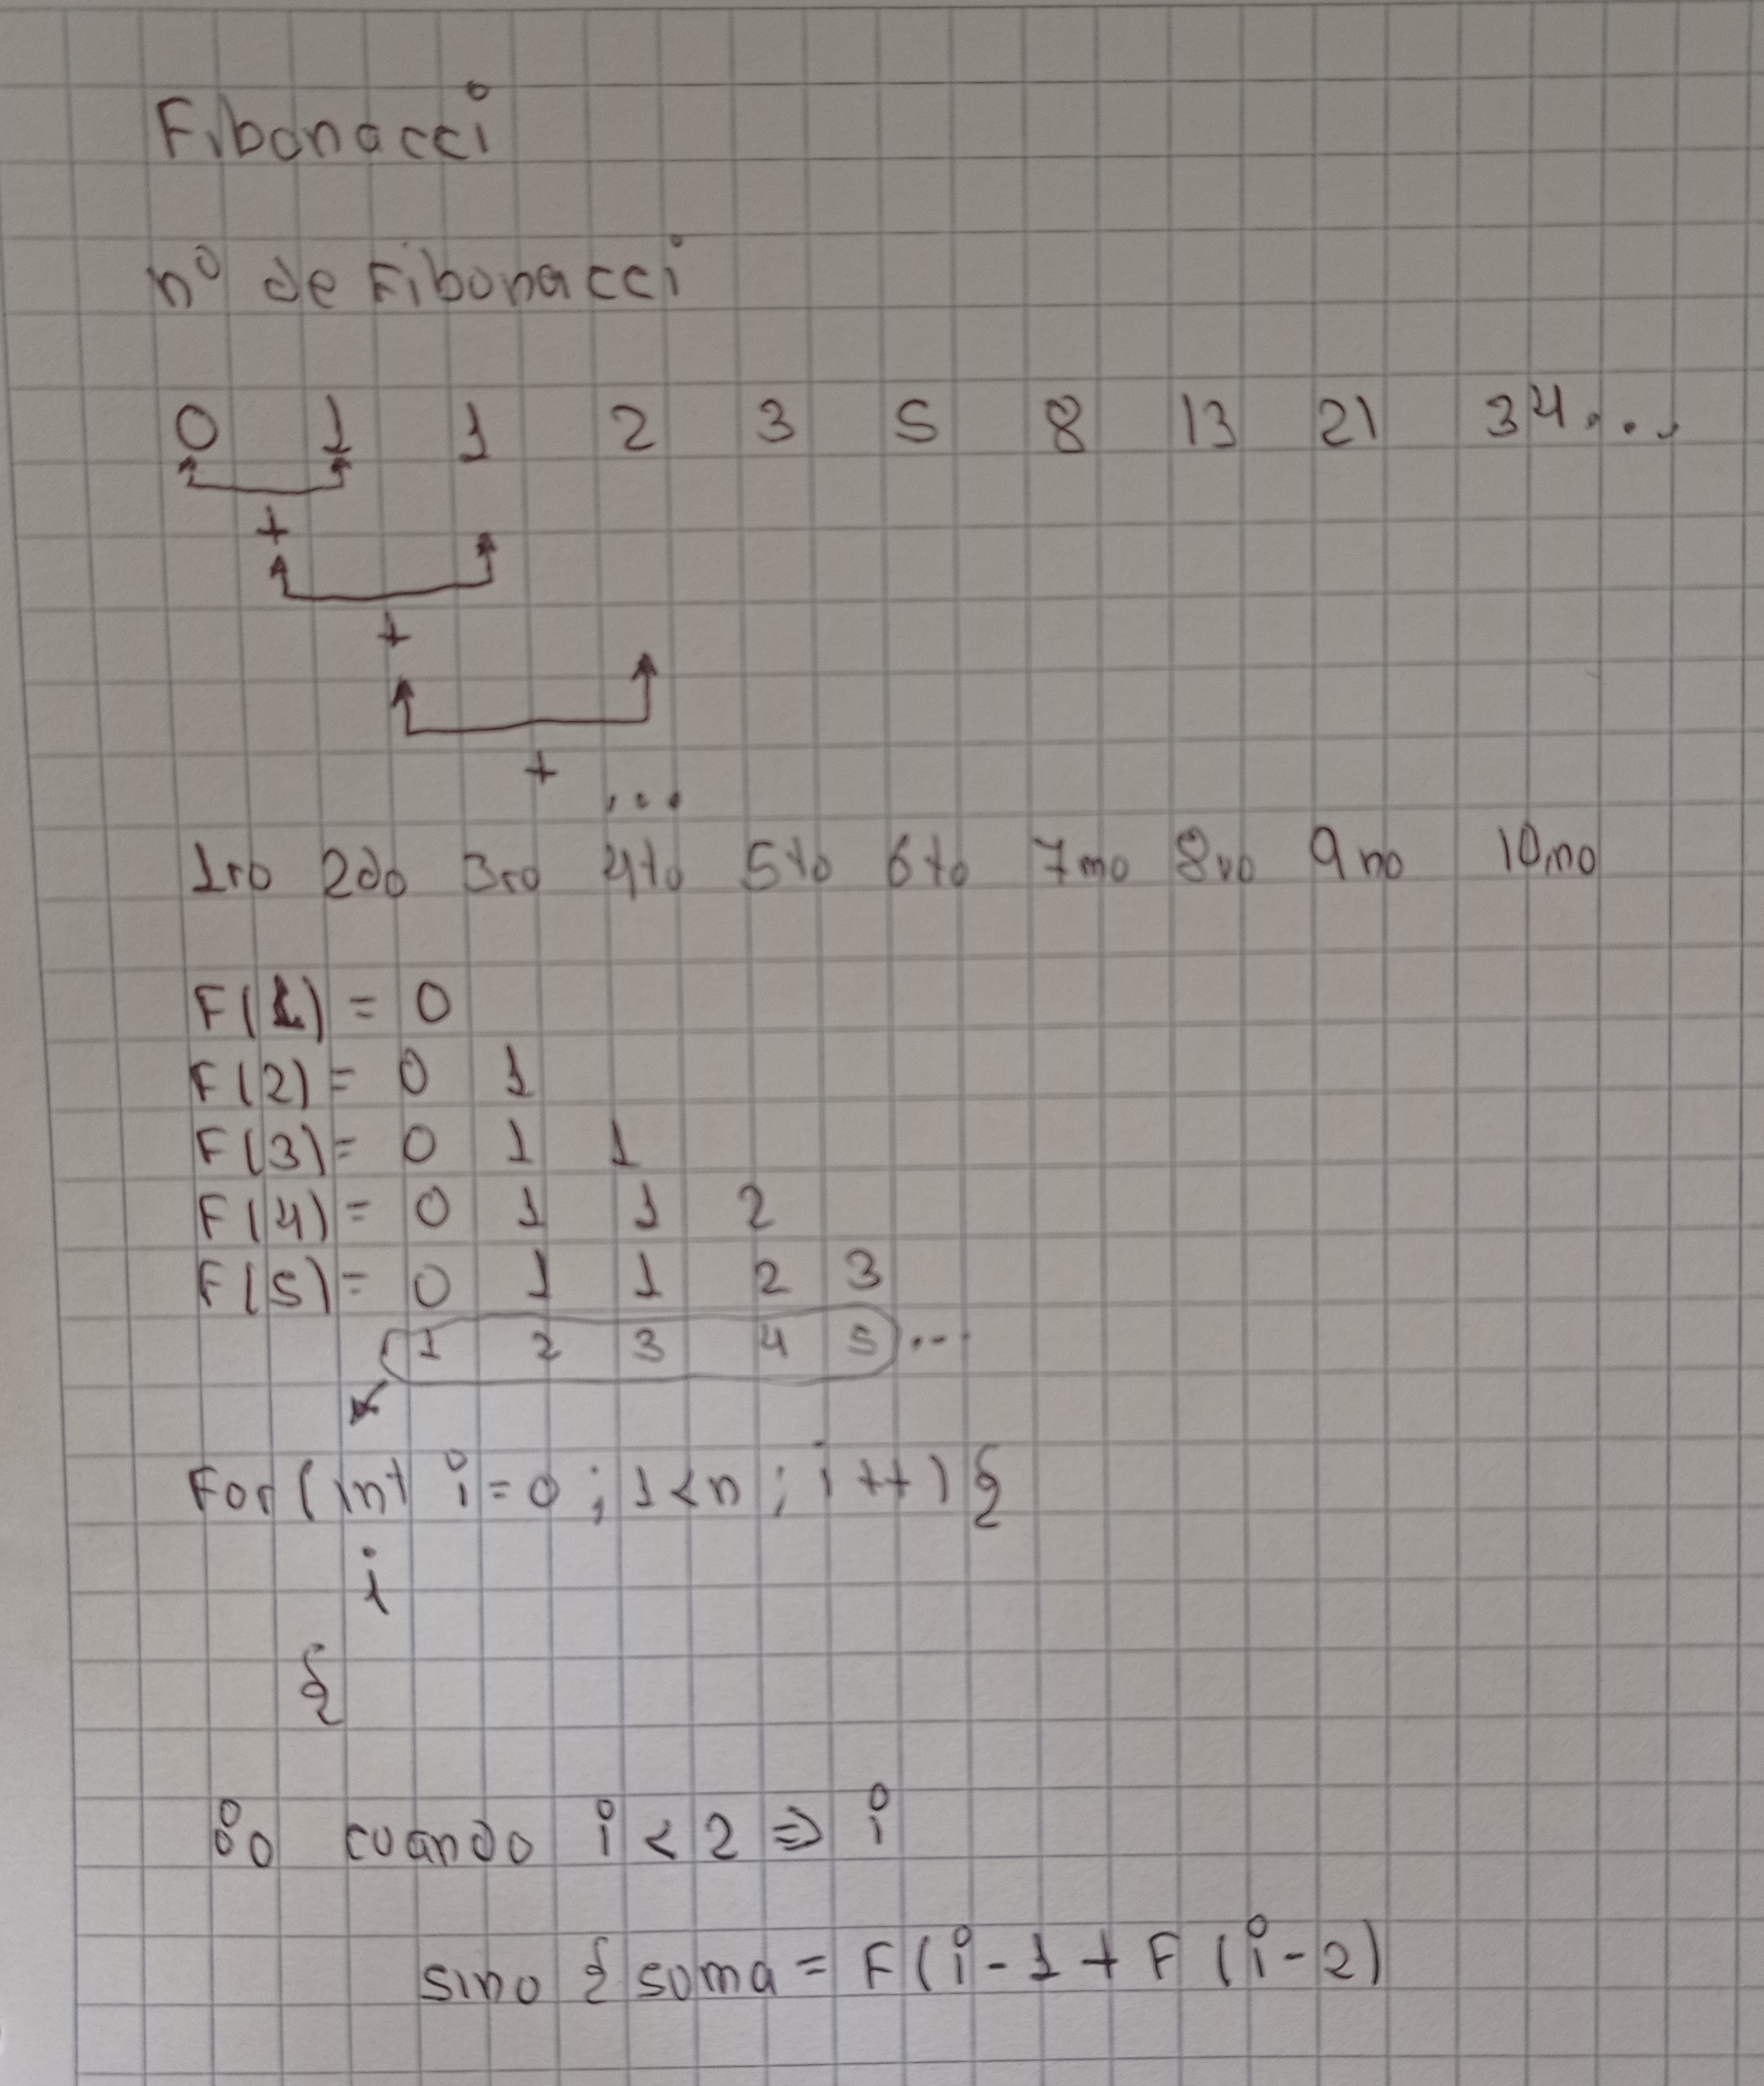 Fibonacci
nº de Fibonacci
0 1 1 2 3 5 8 13 21 34...
+
+
+
...
1ro 2do 3ro 4to 5to 6to 7mo 8vo 9no 10mo
F(1) = 0
F(2) = 0 1
F(3) = 0 1 1
F(4) = 0 1 1 2
F(5) = 0 1 1 2 3
1 2 3 4 5 ...
For (int i=0 ; 1<n ; i++) {
i
{
cuando i < 2 => i
sino { soma = F(i-1 + F(i-2)